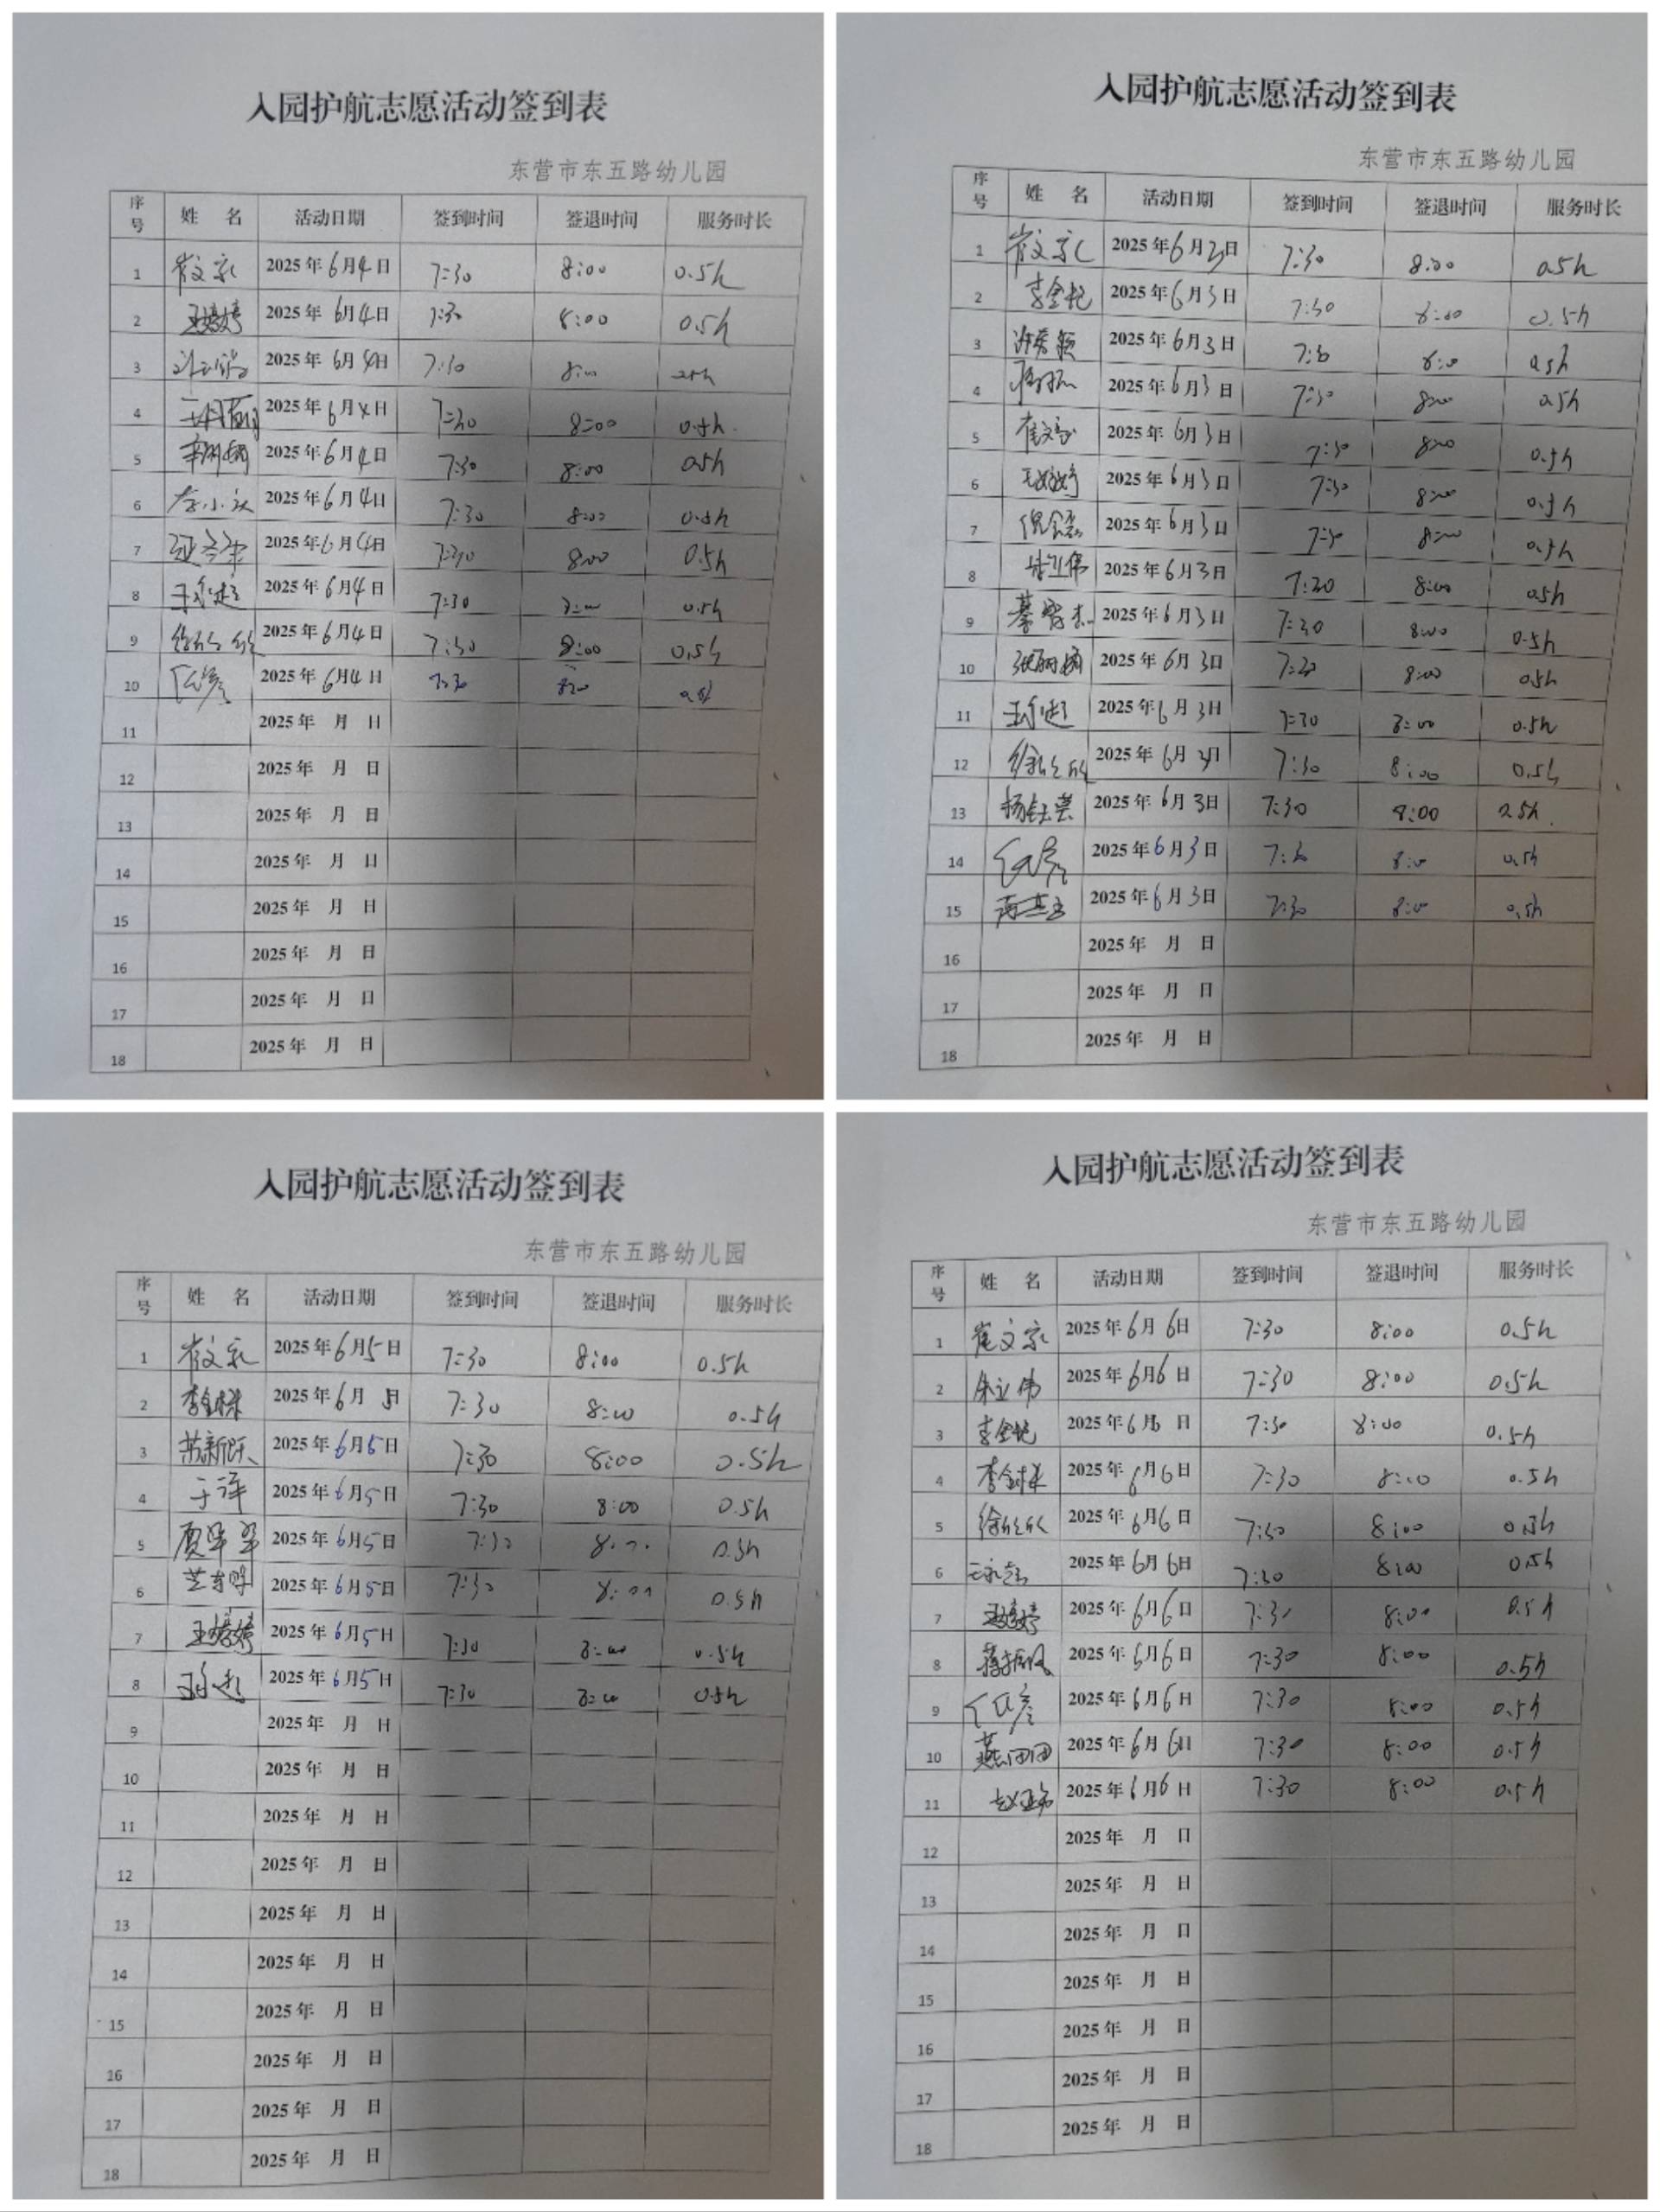 入园护航志愿活动签到表
东营市东五路幼儿园
序号 姓 名 活动日期 签到时间 签退时间 服务时长
1 崔文家 2025年6月4日 7:30 8:00 0.5h
2 王婷婷 2025年6月4日 7:30 8:00 0.5h
3 2025年6月4日 7:30 8:00 0.5h
4 2025年6月4日 7:30 8:00 0.5h
5 2025年6月4日 7:30 8:00 0.5h
6 2025年6月4日 7:30 8:00 0.5h
7 2025年6月4日 7:30 8:00 0.5h
8 2025年6月4日 7:30 8:00 0.5h
9 徐欣欣 2025年6月4日 7:30 8:00 0.5h
10 2025年6月4日 7:30 8:00 0.5h
11 2025年 月 日
12 2025年 月 日
13 2025年 月 日
14 2025年 月 日
15 2025年 月 日
16 2025年 月 日
17 2025年 月 日
18 2025年 月 日
入园护航志愿活动签到表
东营市东五路幼儿园
序号 姓 名 活动日期 签到时间 签退时间 服务时长
1 崔文家 2025年6月3日 7:30 8:00 0.5h
2 2025年6月3日 7:30 8:00 0.5h
3 2025年6月3日 7:30 8:00 0.5h
4 2025年6月3日 7:30 8:00 0.5h
5 2025年6月3日 7:30 8:00 0.5h
6 王婷婷 2025年6月3日 7:30 8:00 0.5h
7 2025年6月3日 7:30 8:00 0.5h
8 2025年6月3日 7:30 8:00 0.5h
9 2025年6月3日 7:30 8:00 0.5h
10 2025年6月3日 7:30 8:00 0.5h
11 2025年6月3日 7:30 8:00 0.5h
12 徐欣欣 2025年6月3日 7:30 8:00 0.5h
13 2025年6月3日 7:30 8:00 2.5h
14 2025年6月3日 7:30 8:00 0.5h
15 2025年6月3日 7:30 8:00 0.5h
16 2025年 月 日
17 2025年 月 日
18 2025年 月 日
入园护航志愿活动签到表
东营市东五路幼儿园
序号 姓 名 活动日期 签到时间 签退时间 服务时长
1 崔文家 2025年6月5日 7:30 8:00 0.5h
2 2025年6月5日 7:30 8:00 0.5h
3 苏新跃 2025年6月5日 7:30 8:00 0.5h
4 于洋 2025年6月5日 7:30 8:00 0.5h
5 2025年6月5日 7:30 8:00 0.5h
6 2025年6月5日 7:30 8:00 0.5h
7 王婷婷 2025年6月5日 7:30 8:00 0.5h
8 2025年6月5日 7:30 8:00 0.5h
9 2025年 月 日
10 2025年 月 日
11 2025年 月 日
12 2025年 月 日
13 2025年 月 日
14 2025年 月 日
15 2025年 月 日
16 2025年 月 日
17 2025年 月 日
18 2025年 月 日
入园护航志愿活动签到表
东营市东五路幼儿园
序号 姓 名 活动日期 签到时间 签退时间 服务时长
1 崔文家 2025年6月6日 7:30 8:00 0.5h
2 2025年6月6日 7:30 8:00 0.5h
3 2025年6月6日 7:30 8:00 0.5h
4 2025年6月6日 7:30 8:00 0.5h
5 徐欣欣 2025年6月6日 7:30 8:00 0.5h
6 2025年6月6日 7:30 8:00 0.5h
7 王婷婷 2025年6月6日 7:30 8:00 0.5h
8 2025年6月6日 7:30 8:00 0.5h
9 2025年6月6日 7:30 8:00 0.5h
10 燕团团 2025年6月6日 7:30 8:00 0.5h
11 2025年6月6日 7:30 8:00 0.5h
12 2025年 月 日
13 2025年 月 日
14 2025年 月 日
15 2025年 月 日
16 2025年 月 日
17 2025年 月 日
18 2025年 月 日